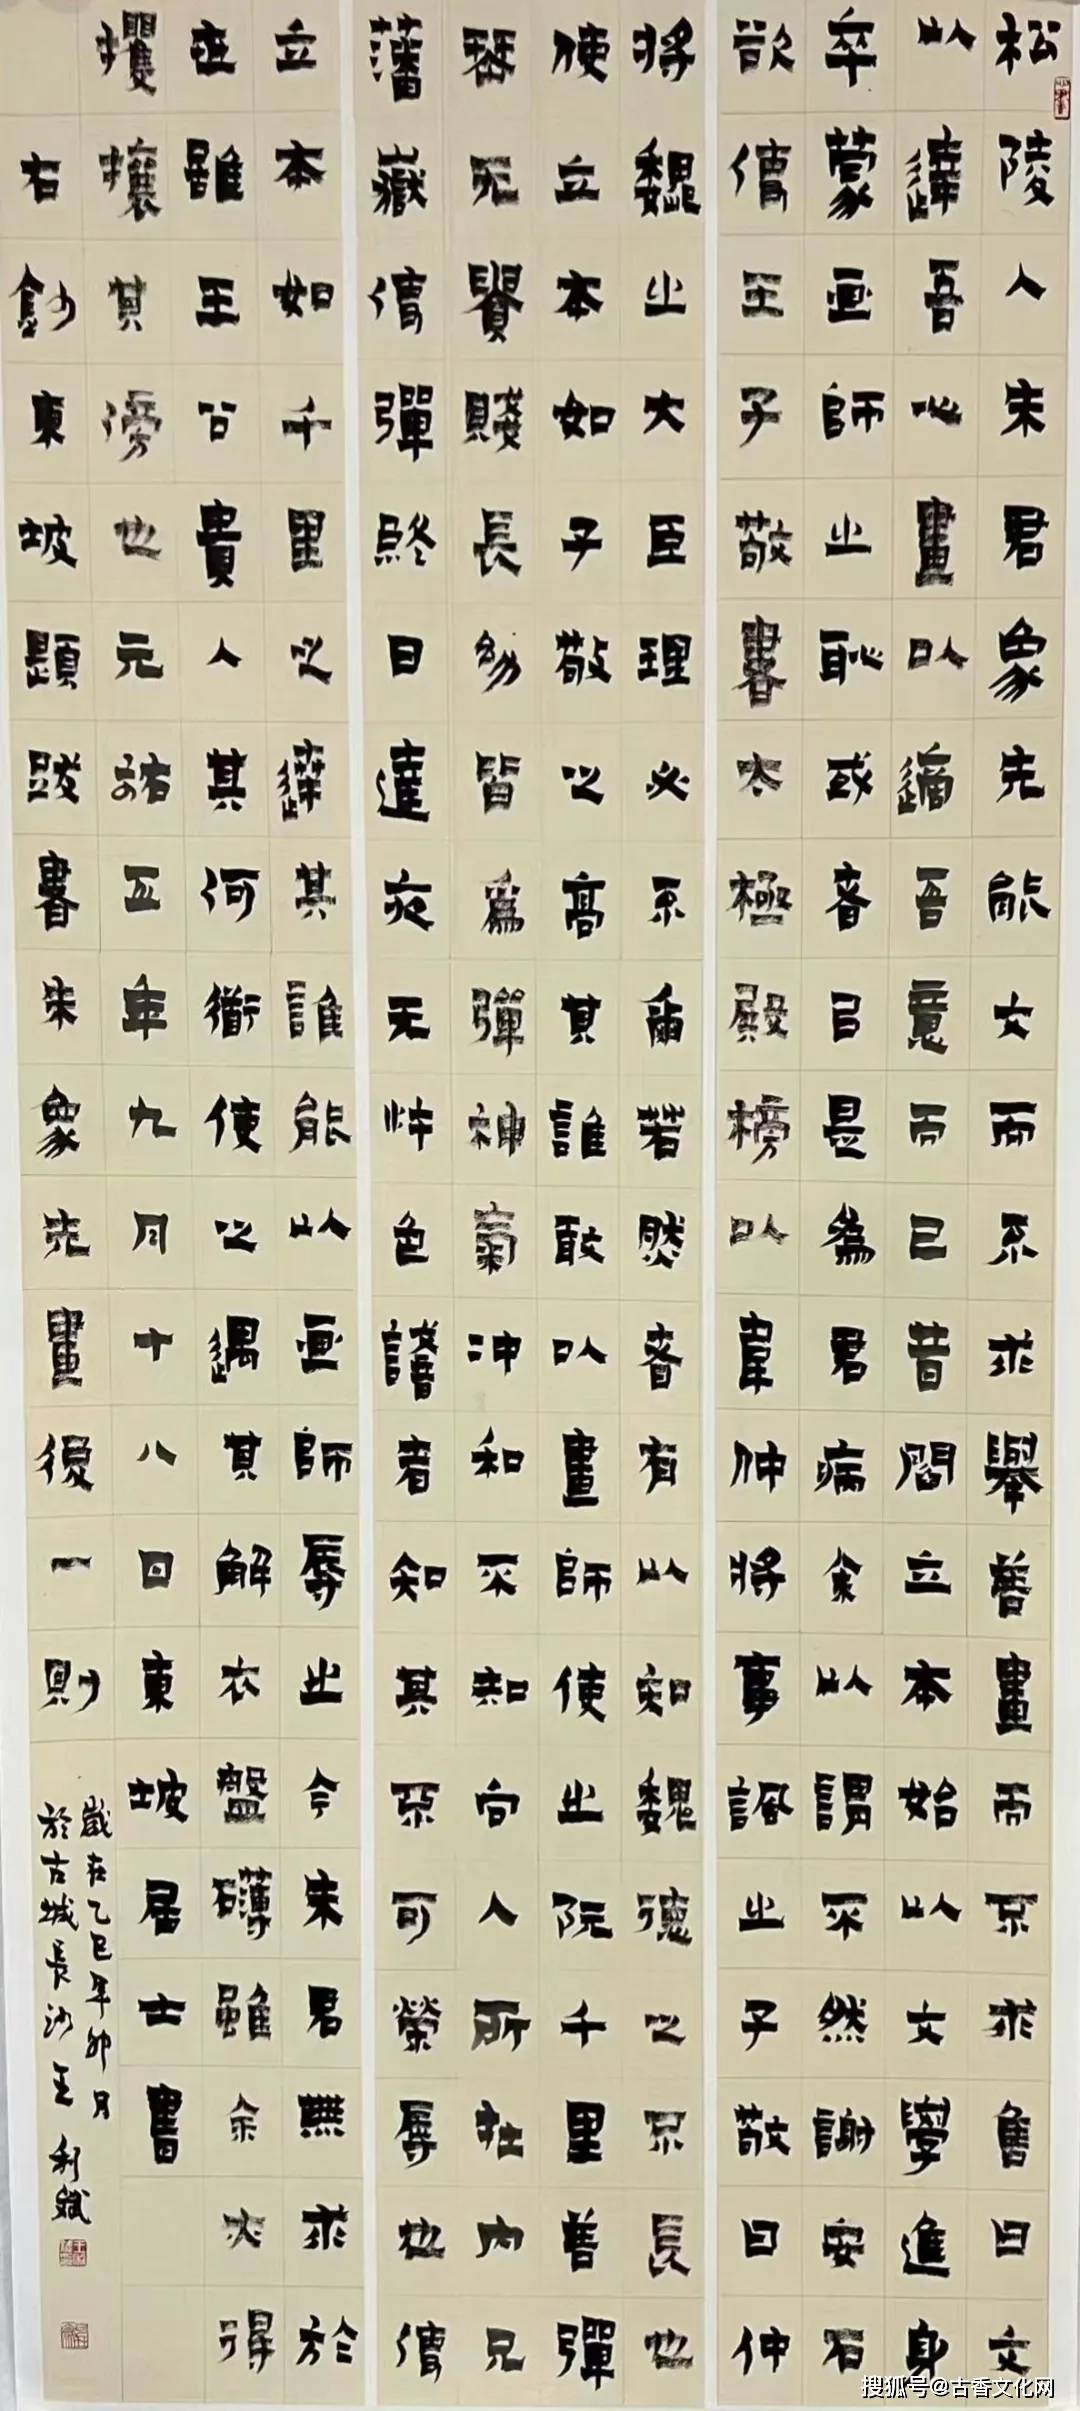 松陵人朱君象先能文而不求舉善畫而不求售曰文
以達吾心畫以適吾意而已昔閻立本始以文學進身
卒蒙画師之恥或者以是為君病余以謂不然謝安石
欲使王子敬書太極殿榜以韋仲將事諷之子敬曰仲
將魏之大臣理必不爾若然者有以知魏德之不長也
使立本如子敬之高其誰敢以畫師使之阮千里善彈
琴无貴賤長幼皆為彈神氣沖和不知向人所在內兄
藩嶽使彈終日達夜无忤色識者知其不可榮辱也使
立本如千里之達其誰能以画師辱之今朱君無求於
世雖王公貴人其何道使之遇其解衣盤礴雖余亦得
攫攘其旁也元祐五年九月十八日東坡居士書
右鈔東坡題跋書朱象先畫後一則
歲在乙巳年卯月
於古城長沙王利斌
搜狐号@古香文化网